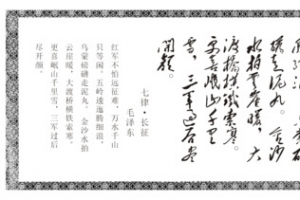 礴走泥丸。金沙
水拍云崖暖，大
渡桥横铁索寒。
更喜岷山千里
雪，三军过后尽
开颜。
七律·长征
毛泽东
红军不怕远征难，万水千山
只等闲。五岭逶迤腾细浪，
乌蒙磅礴走泥丸。金沙水拍
云崖暖，大渡桥横铁索寒。
更喜岷山千里雪，三军过后
尽开颜。